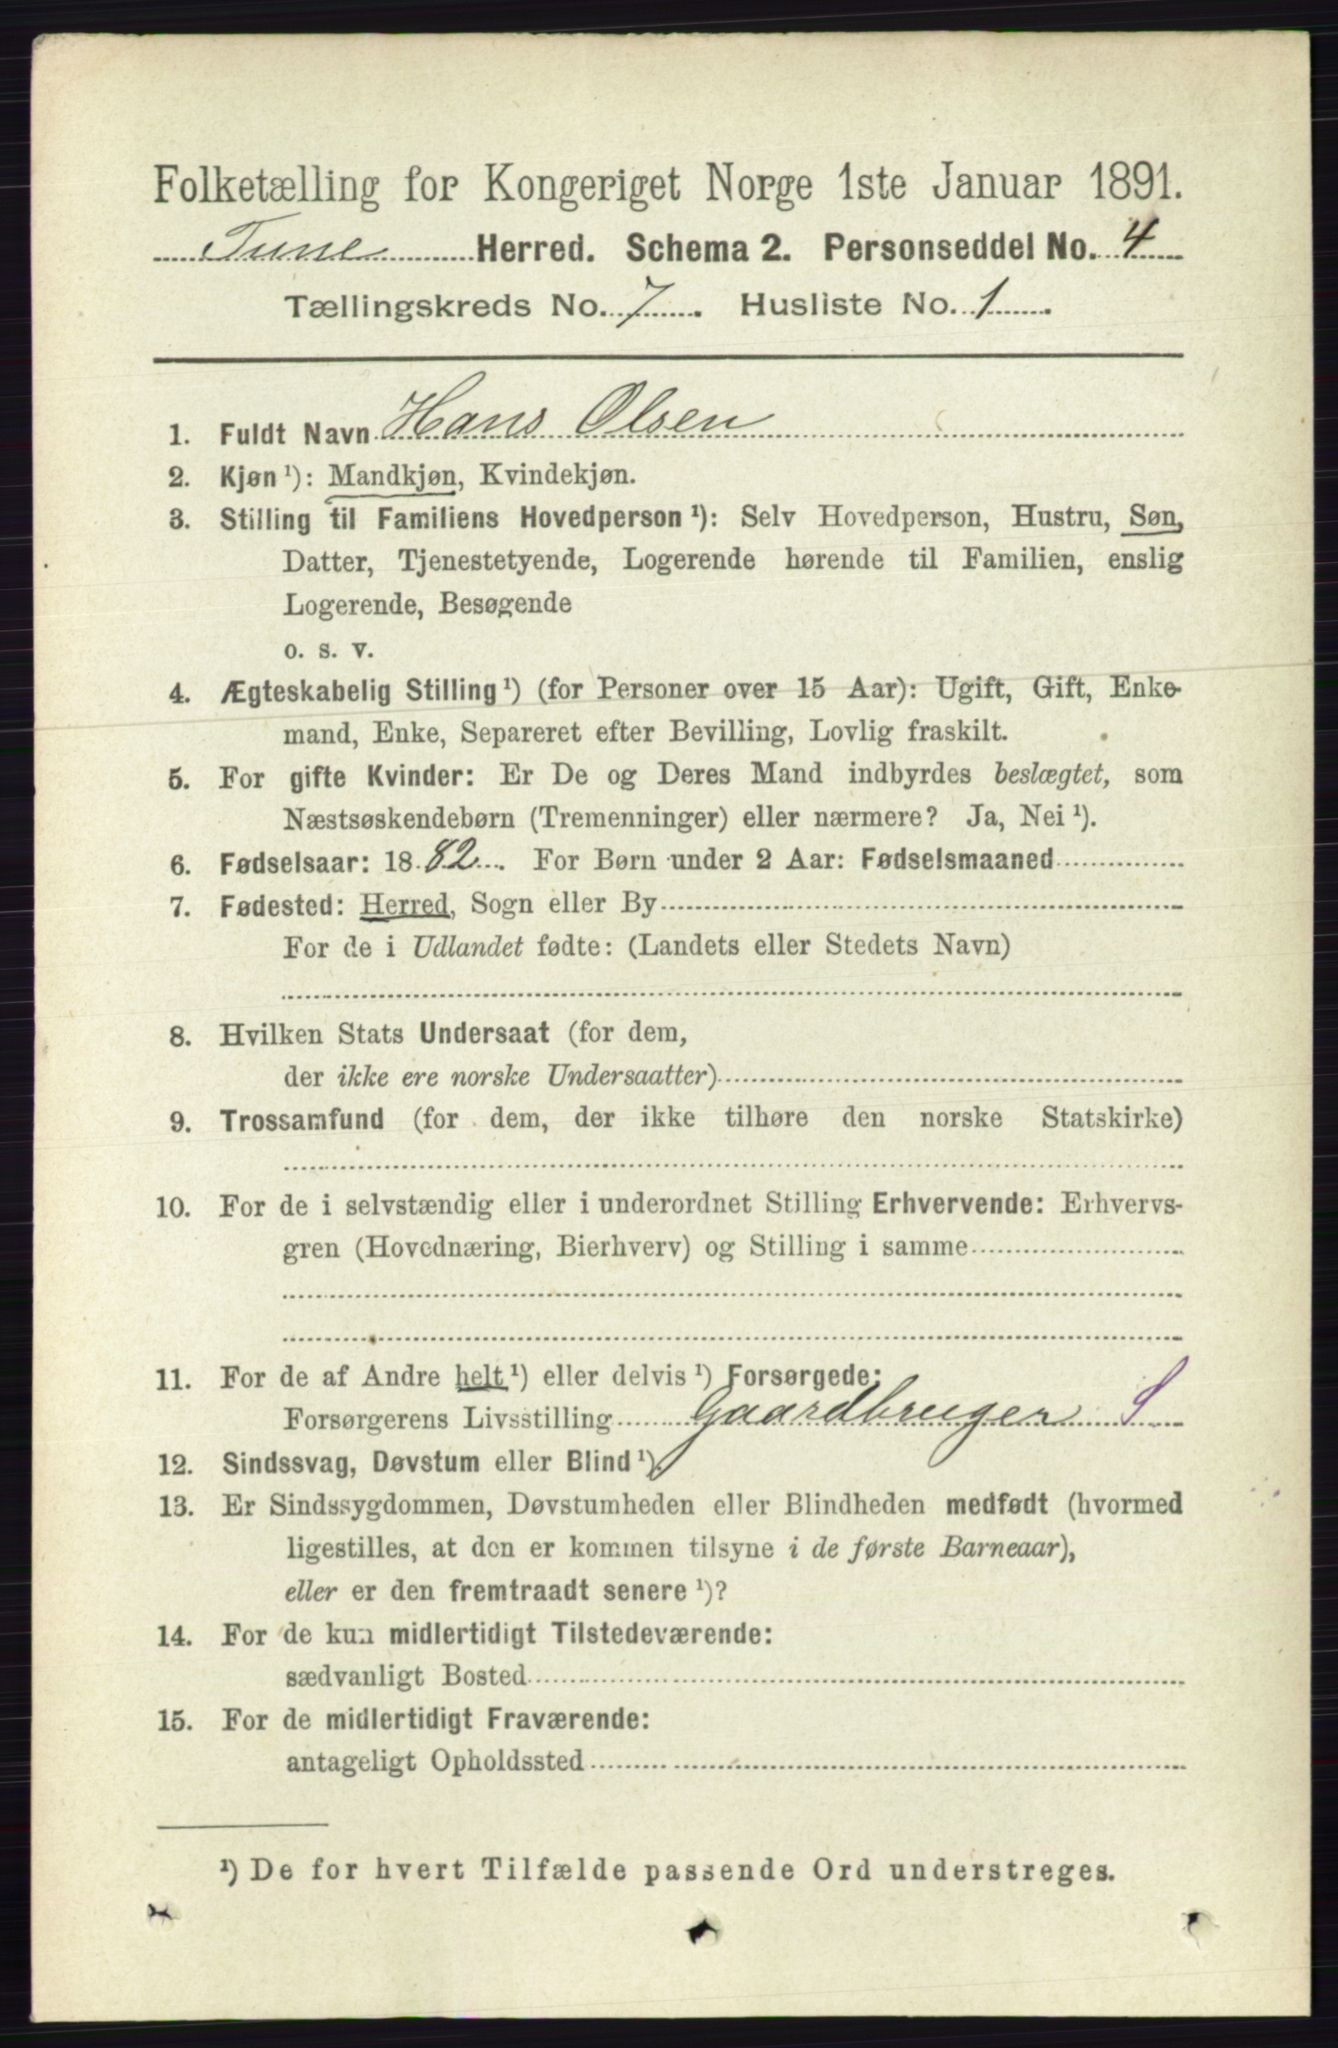 Folketælling for Kongeriget Norge 1ste Januar 1891.
Tune Herred. Schema 2. Personseddel No. 4
Tællingskreds No. 7. Husliste No. 1.
1. Fuldt Navn Hans Olsen
2. Kjøn ¹): Mandkjøn, Kvindekjøn.
3. Stilling til Familiens Hovedperson ¹): Selv Hovedperson, Hustru, Søn,
Datter, Tjenestetyende, Logerende hørende til Familien, enslig
Logerende, Besøgende
o. s. v.
4. Ægteskabelig Stilling ¹) (for Personer over 15 Aar): Ugift, Gift, Enke-
mand, Enke, Separeret efter Bevilling, Lovlig fraskilt.
5. For gifte Kvinder: Er De og Deres Mand indbyrdes beslægtet, som
Næstsøskendebørn (Tremenninger) eller nærmere? Ja, Nei ¹).
6. Fødselsaar: 1882. For Børn under 2 Aar: Fødselsmaaned
7. Fødested: Herred, Sogn eller By
For de i Udlandet fødte: (Landets eller Stedets Navn)
8. Hvilken Stats Undersaat (for dem,
der ikke ere norske Undersaatter)
9. Trossamfund (for dem, der ikke tilhøre den norske Statskirke)
10. For de i selvstændig eller i underordnet Stilling Erhvervende: Erhvervs-
gren (Hovednæring, Bierhverv) og Stilling i samme
11. For de af Andre helt ¹) eller delvis ¹) Forsørgede:
Forsørgerens Livsstilling Gaardbruger S
12. Sindssvag, Døvstum eller Blind ¹).
13. Er Sindssygdommen, Døvstumheden eller Blindheden medfødt (hvormed
ligestilles, at den er kommen tilsyne i de første Barneaar),
eller er den fremtraadt senere ¹)?
14. For de kun midlertidigt Tilstedeværende:
sædvanligt Bosted
15. For de midlertidigt Fraværende:
antageligt Opholdssted
¹) De for hvert Tilfælde passende Ord understreges.